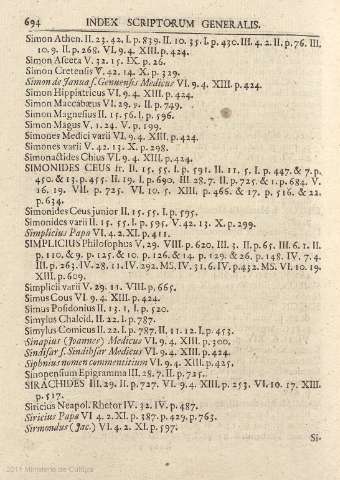 694 INDEX SCRIPTORUM GENERALIS.
Simon Athen. II. 23. 42. I. p. 839. II. 10. 35. I. p. 430. III. 4. 2. II. p. 76. III.
10. 9. II. p. 268. VI. 9. 4. XIII. p. 424.
Simon Asceta V. 32. 15. IX. p. 26.
Simon Cretensis V. 42. 14. X. p. 329.
Simon de Janua s. Genuensis Medicus VI. 9. 4. XIII. p. 424.
Simon Hippiatricus VI. 9. 4. XIII. p. 424.
Simon Maccabæus VI. 29. 9. II. p. 749.
Simon Magnesius II. 15. 56. I. p. 596.
Simon Magus V. 1. 24. V. p. 199.
Simones Medici varii VI. 9. 4. XIII. p. 424.
Simones varii V. 42. 13. X. p. 298.
Simonactides Chius VI. 9. 4. XIII. p. 424.
SIMONIDES CEUS fr. II. 15. 55. I. p. 591. II. 11. 5. I. p. 447. & 7. p.
450. & 13. p. 455. III. 19. I. p. 690. III. 28. 7. II. p. 725. & 1. p. 684. V.
16. 19. VII. p. 725. VI. 10. 5. XIII. p. 466. & 17. p. 516. & 22.
p. 634.
Simonides Ceus junior II. 15. 55. I. p. 595.
Simonides varii II. 15. 55. I. p. 595. V. 42. 13. X. p. 299.
Simplicius Papa VI. 4. 2. XI. p. 411.
SIMPLICIUS Philosophus V. 29. VIII. p. 620. III. 3. II. p. 65. III. 6. 1. II.
p. 110. & 9. p. 125. & 10. p. 126. & 14. p. 129. & 26. p. 148. IV. 7. 4.
III. p. 263. IV. 28. 11. IV. 292. MS. IV. 31. 6. IV. p. 432. MS. VI. 10. 19.
XIII. p. 609.
Simplicii varii V. 29. 11. VIII. p. 665.
Simus Cous VI. 9. 4. XIII. p. 424.
Simus Posidonius II. 13. 1. I. p. 520.
Simylus Chalcid. II. 22. I. p. 787.
Simylus Comicus II. 22. I. p. 787. II. 11. 12. I. p. 453.
Sinapius (Joannes) Medicus VI. 9. 4. XIII. p. 300.
Sindisar s. Sindibsar Medicus VI. 9. 4. XIII. p. 424.
Siphnius nomen commentitium VI. 9. 4. XIII. p. 425.
Sinopensium Epigramma III. 28. 7. II. p. 725.
SIRACHIDES III. 29. II. p. 727. VI. 9. 4. XIII. p. 253. VI. 10. 17. XIII.
p. 517.
Siricius Neapol. Rhetor IV. 32. IV. p. 487.
Siricius Papa VI 4. 2. XI. p. 387. p. 429. p. 763.
Sirmondus (Jac.) VI. 4. 2. XI. p. 597.
Si-
2011 Ministerio de Cultura